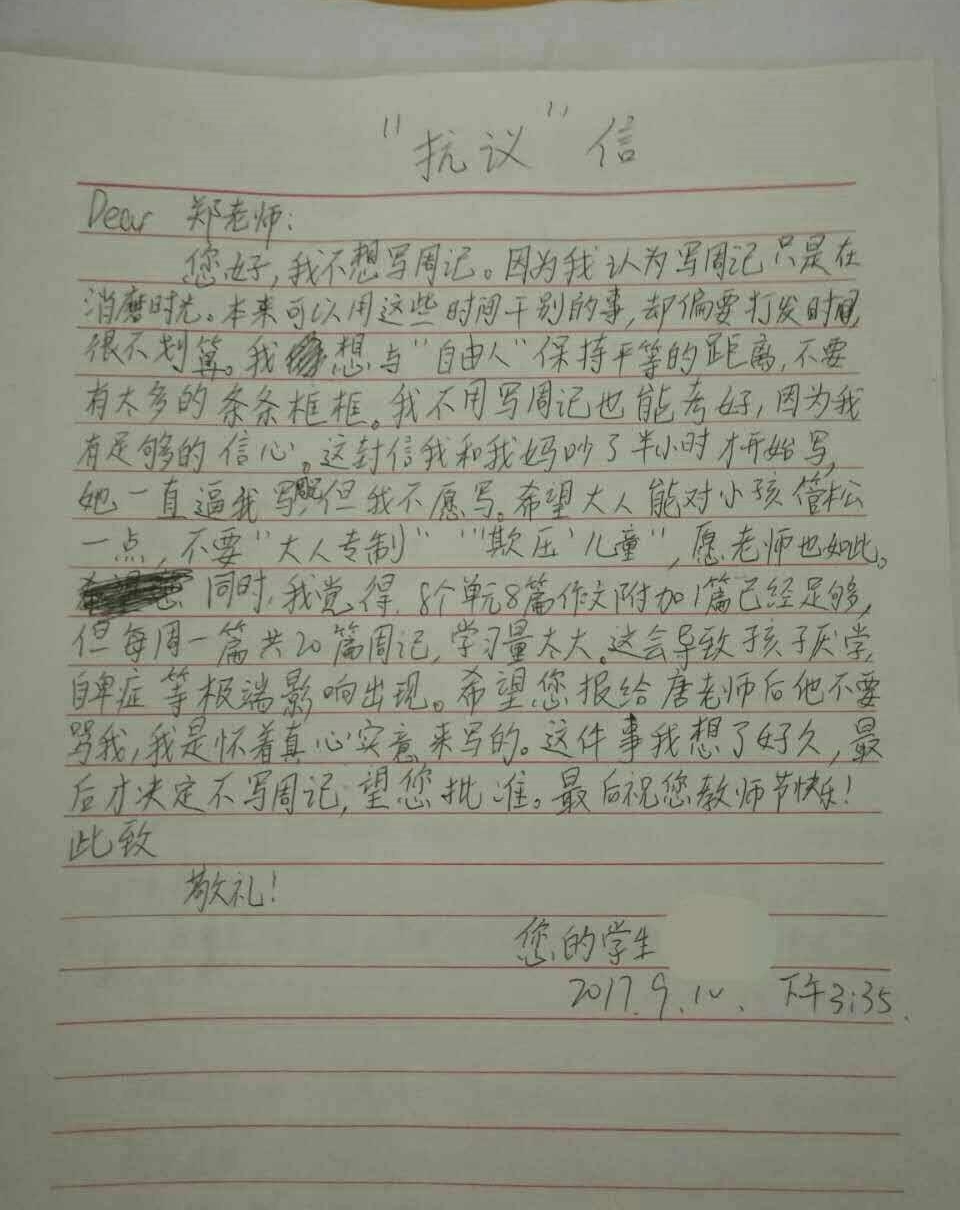 “抗议”信
Dear 郑老师:
您好,我不想写周记。因为我认为写周记只是在
消磨时光。本来可以用这些时间干别的事,却偏要打发时间,
很不划算。我想与“自由人”保持平等的距离,不要
有太多的条条框框。我不用写周记也能考好,因为我
有足够的信心。这封信我和我妈吵了半小时才开始写,
她一直逼我写,但我不愿写。希望大人能对小孩管松
一点,不要“大人专制”“欺压儿童”,愿老师也如此。
同时,我觉得,8个单元8篇作文附加1篇已经足够,
但每周一篇共20篇周记,学习量太大。这会导致孩子厌学,
自卑症等极端影响出现。希望您报给唐老师后他不要
骂我,我是怀着真心实意来写的。这件事我想了好久,最
后才决定不写周记,望您批准。最后祝您教师节快乐!
此致
敬礼!
您的学生
2017.9.10. 下午3:35.